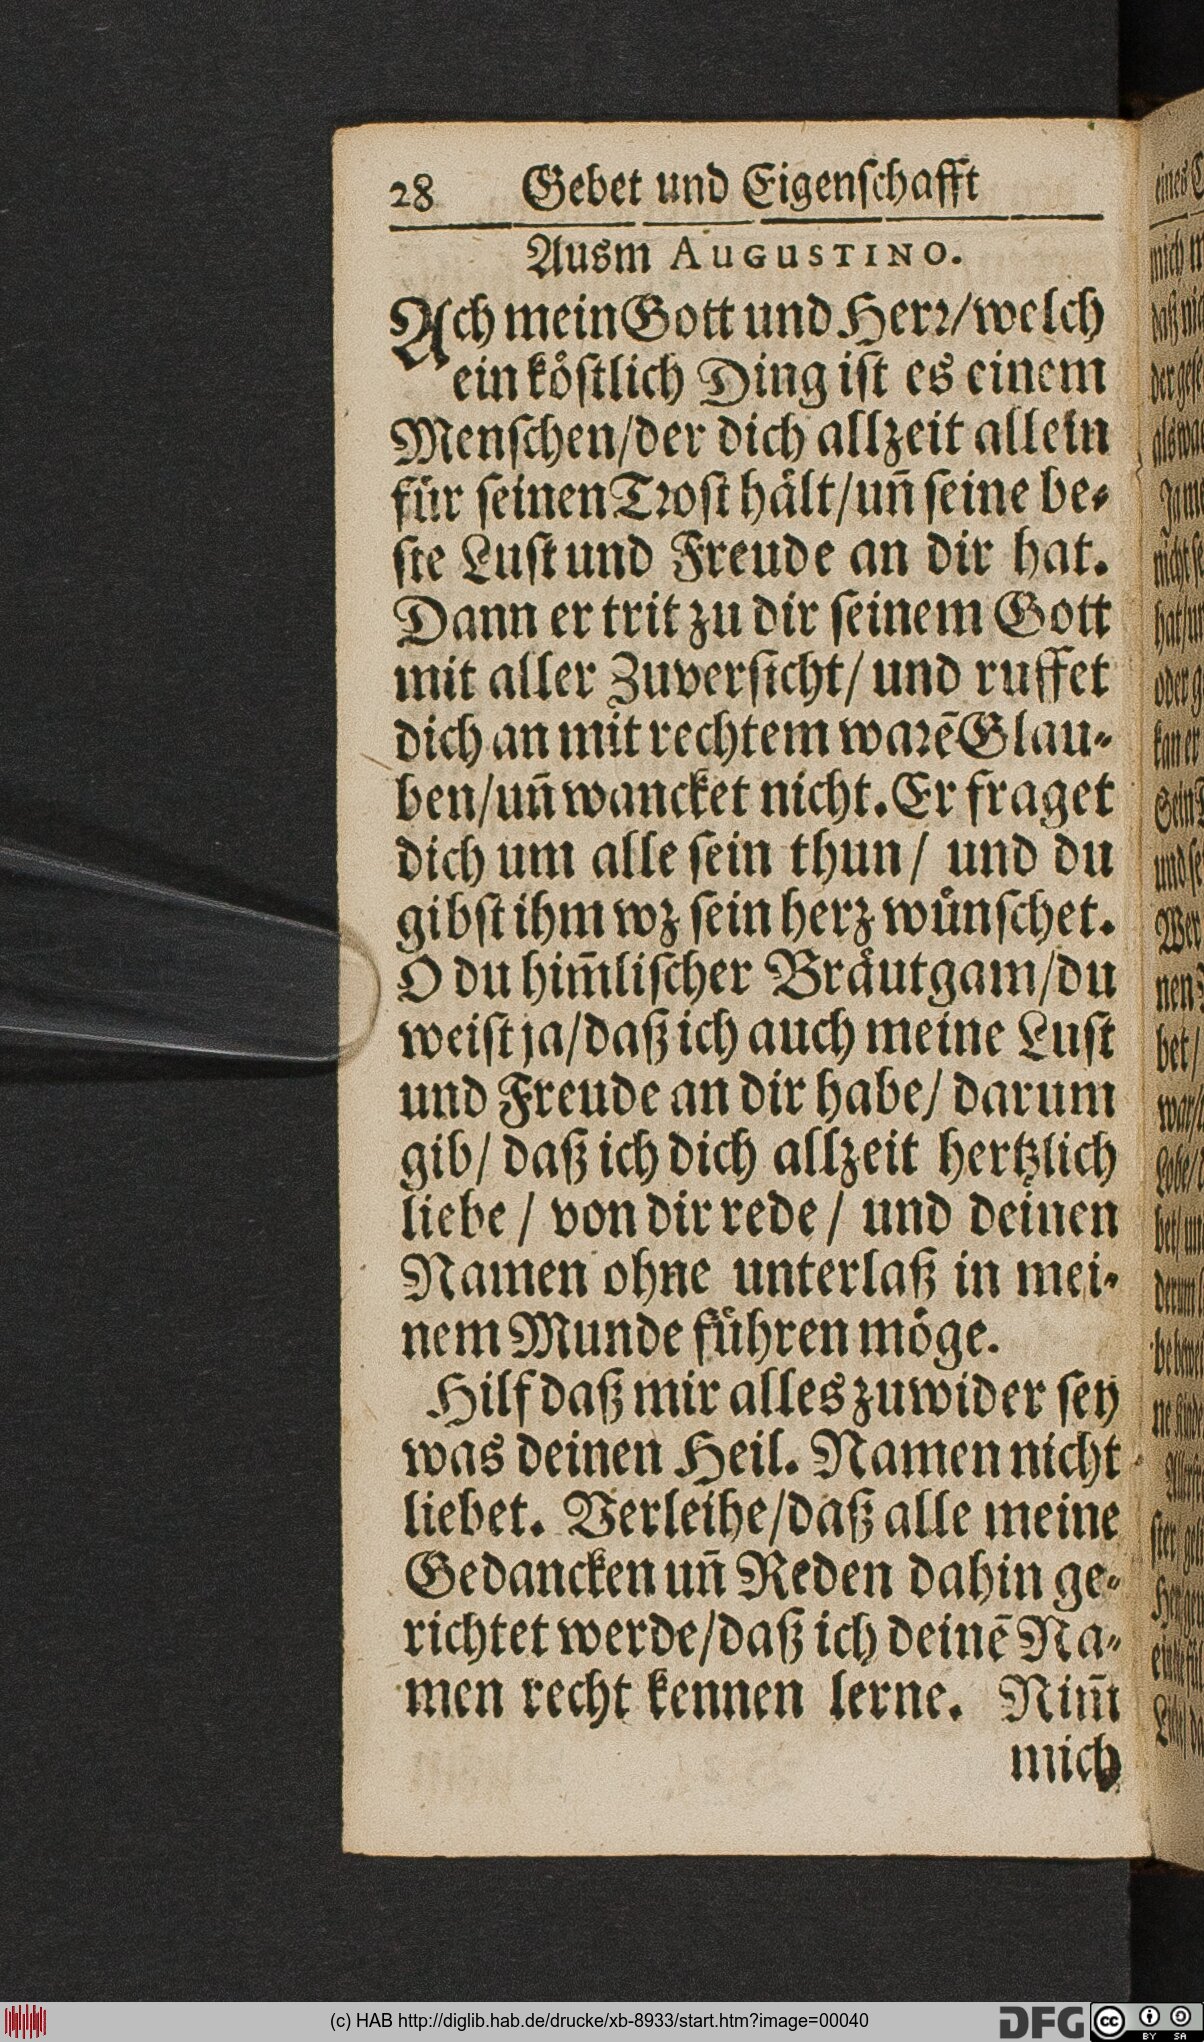 28 Gebet und Eigenſchafft
Ausm AUGUSTINO.
Ach mein Gott und Herꝛ/welch
ein koͤſtlich Ding iſt es einem
Menſchen/der dich allzeit allein
fuͤr ſeinen Tꝛoſt haͤlt/uñ ſeine be-
ſte Luſt und Freude an dir hat.
Dann er trit zu dir ſeinem Gott
mit aller Zuverſicht/ und ruffet
dich an mit rechtem waꝛē Glau-
ben/uñ wancket nicht. Er fraget
dich um alle ſein thun/ und du
gibſt ihm wz ſein herz wuͤnſchet.
O du him̄liſcher Braͤutgam/du
weiſt ja/daß ich auch meine Luſt
und Freude an dir habe/ darum
gib/ daß ich dich allzeit hertzlich
liebe / von dir rede / und deinen
Namen ohne unterlaß in mei-
nem Munde fuͤhren moͤge.
Hilf daß mir alles zuwider ſey
was deinen Heil. Namen nicht
liebet. Verleihe/daß alle meine
Gedancken uñ Reden dahin ge-
richtet werde/daß ich deinē Na-
men recht kennen lerne. Nim̄
mich
(c) HAB http://diglib.hab.de/drucke/xb-8933/start.htm?image=00040
DFG
cc BY SA